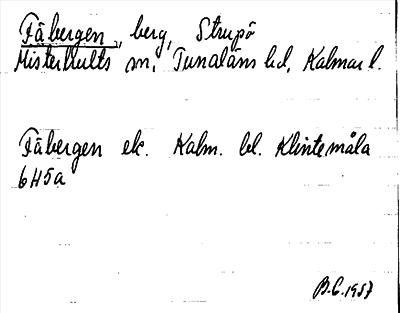 Fäbergen, berg, Strupö
Misterhults sn, Tunaläns hd, Kalmar l.
Fäbergen ek. Kalm. bl. Klintemåla
6H5a
B.G. 1957